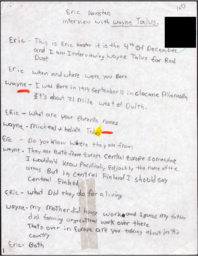 Eric Simpson
Interview with Wayne
Eric - This is Eric it is the 4th of December
and I am interviewing Wayne for Red
Dust
Eric - when and where were you Born
Wayne - I was Born in 1919 September 11 in
It's about 71 mile West of Duluth.
Eric - What are your Parents names
Wayne - Michael and
Eric - Do you know where they are from
Wayne - They are Both from Europe Central Europe somewhere
I wouldn't know the name of the
area But in Central Finland I should say
Central Finland
Eric - What Did they do for a living
Wayne - My mother did house work and I guess my father
did farming work over there
Thats over in Europe are you talking about in this
country
Eric - Both